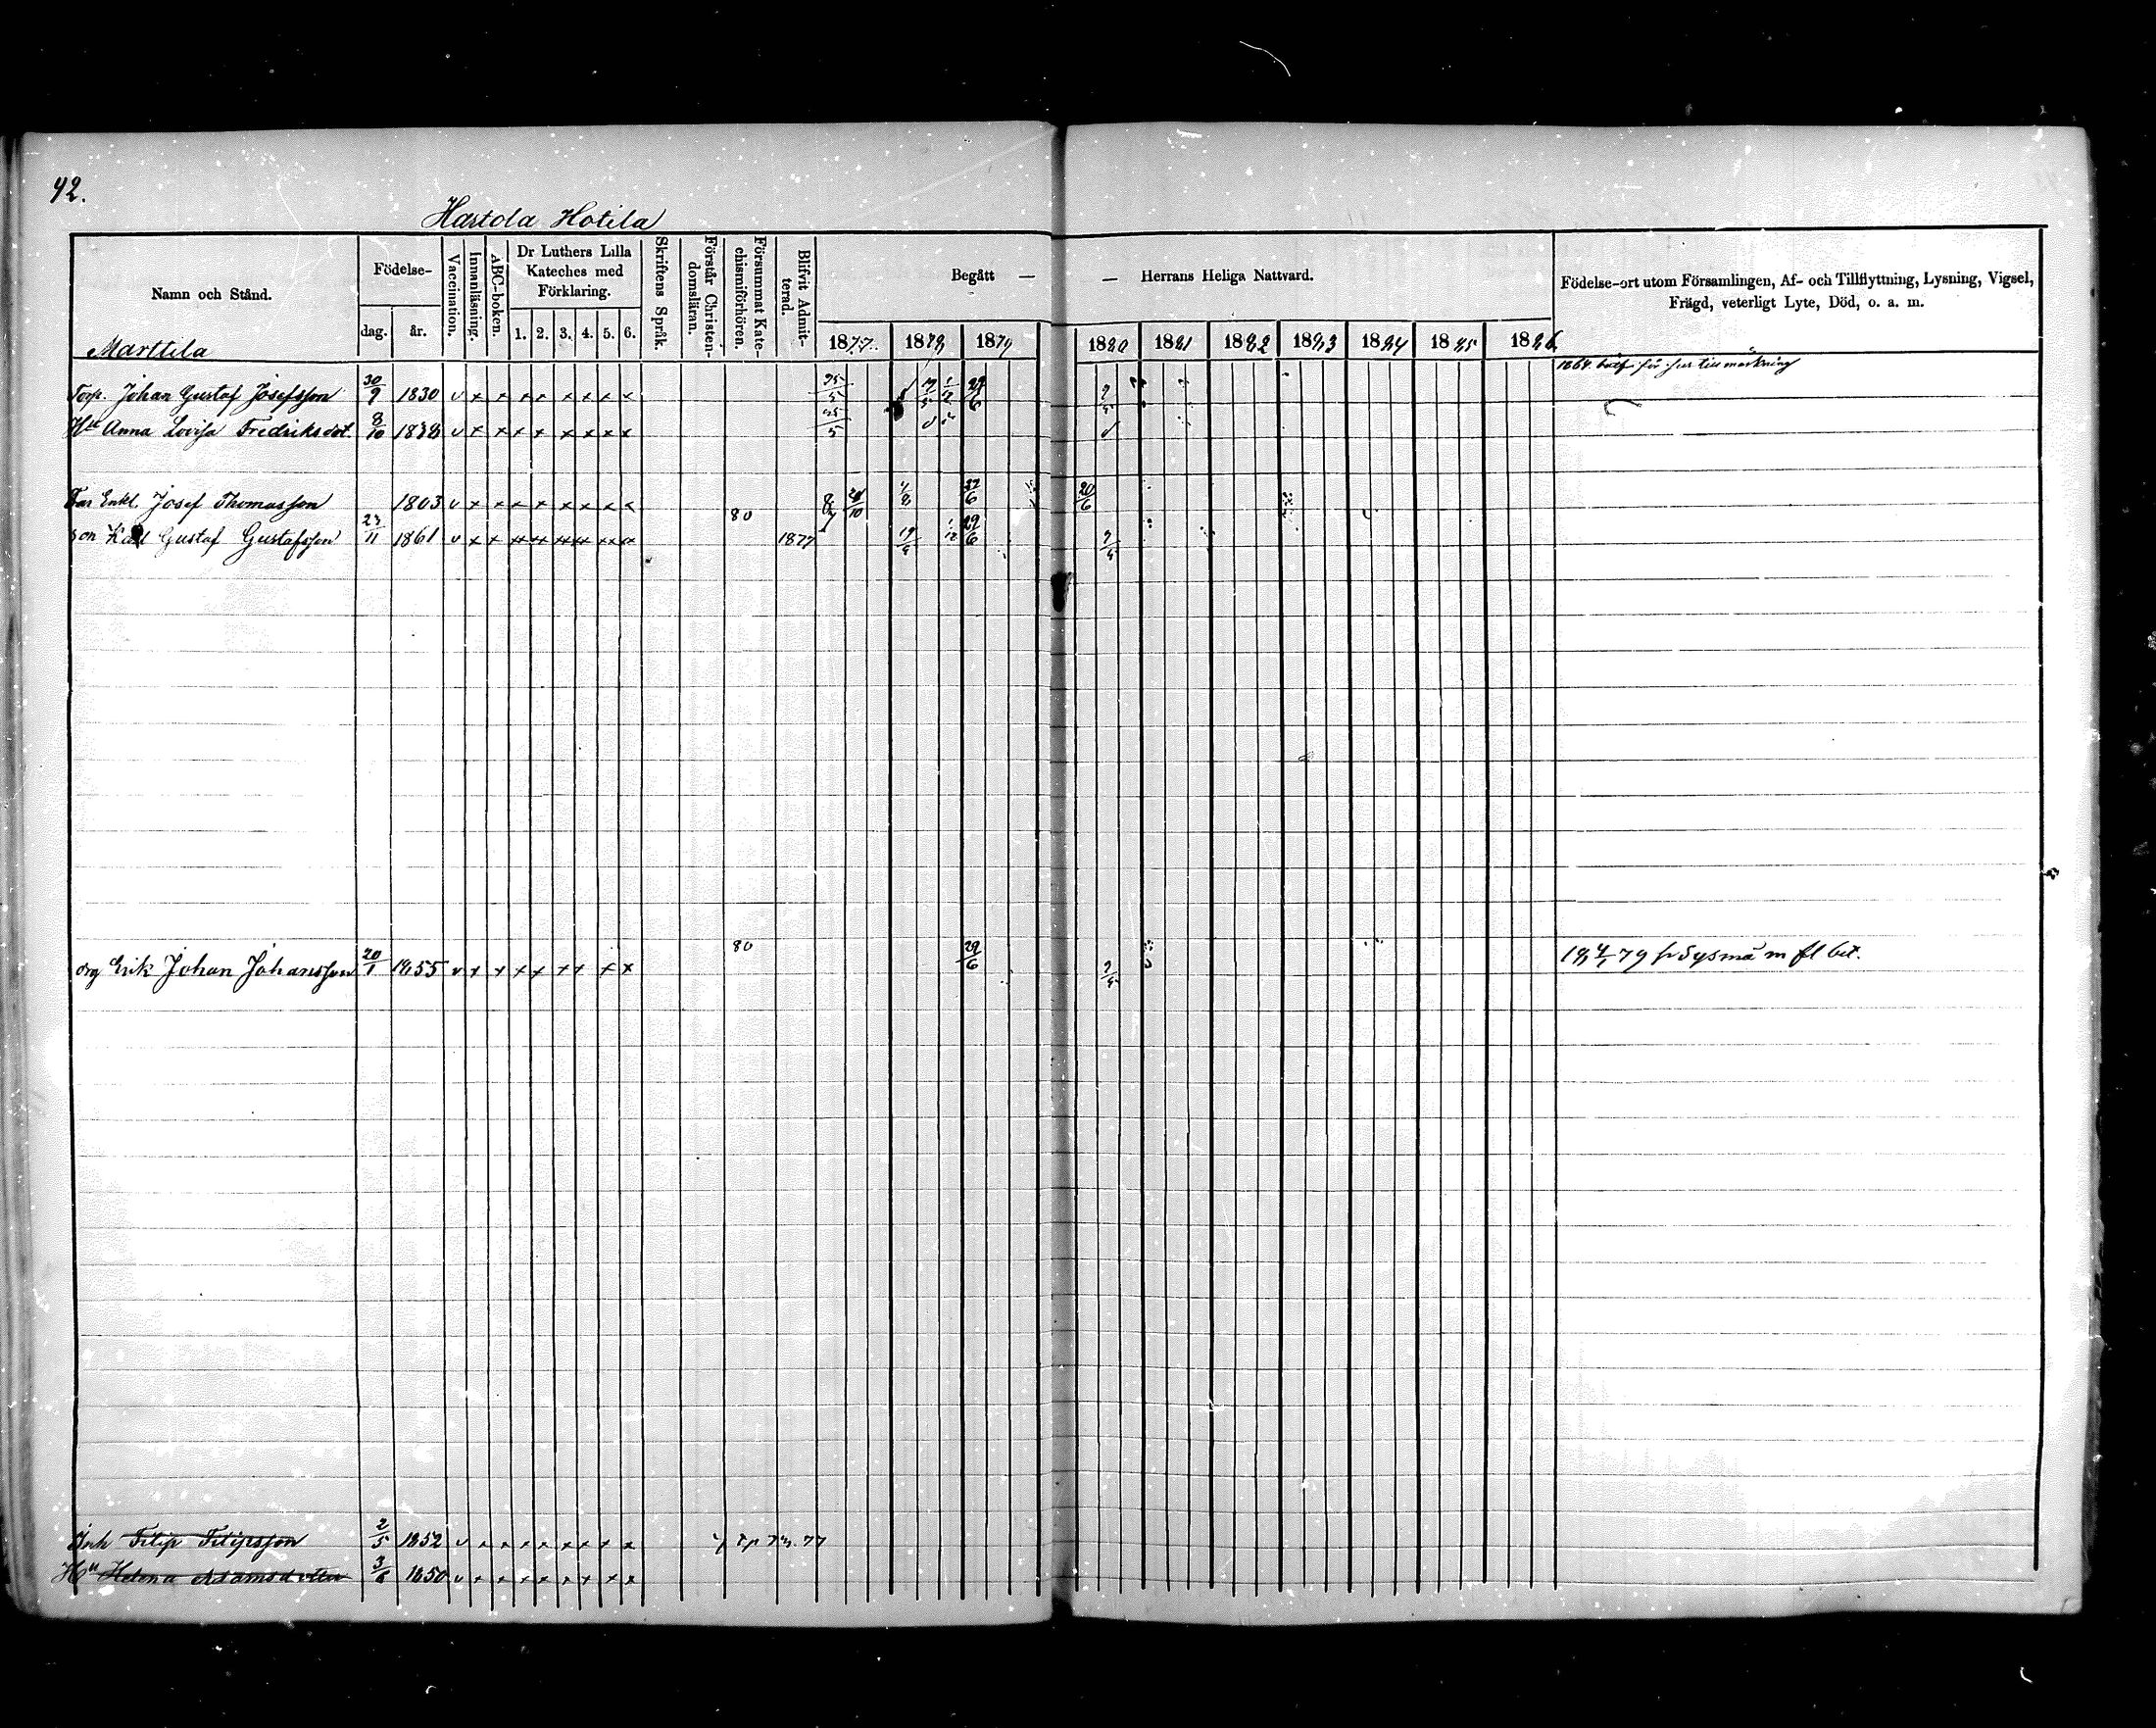 42.
Hartola Hotila
Namn och Stånd.
Födelse-
dag.
år.
Vaccination.
Innanläsning.
ABC-boken.
Dr Luthers Lilla
Kateches med
Förklaring.
1. 2. 3. 4. 5. 6.
Skriftens Språk.
Förstår Christen-
domsläran.
Försummat Kate-
chismiförhören.
Blifvit Admit-
terad.
Begått — — Herrans Heliga Nattvard.
1877. 1878 1879 1880 1881 1882 1883 1884 1885 1886
Födelse-ort utom Församlingen, Af- och Tillflyttning, Lysning, Vigsel,
Frägd, veterligt Lyte, Död, o. a. m.
Marttila
Torp. Johan Gustaf Josefsson 30/9 1830 v x x x x x x x x 25/5 29/6
Hu Anna Lovisa Fredriksdot. 8/10 1838 v x x x x x x x x 25/5
Far Enkl. Josef Thomasson 1803 v x x x x x x x x 80 20/6
son Karl Gustaf Gustafsson 23/11 1861 v x x x x x x x x 1877 29/6
drg Erik Johan Johansson 20/1 1855 v x x x x x x x x 80 29/6 79 fr Sysmä m fl bet.
Inh Filip Filipsson 2/5 1852 v x x x x x x x x 77
Hu Helena Adamsdotter 3/6 1850 v x x x x x x x x